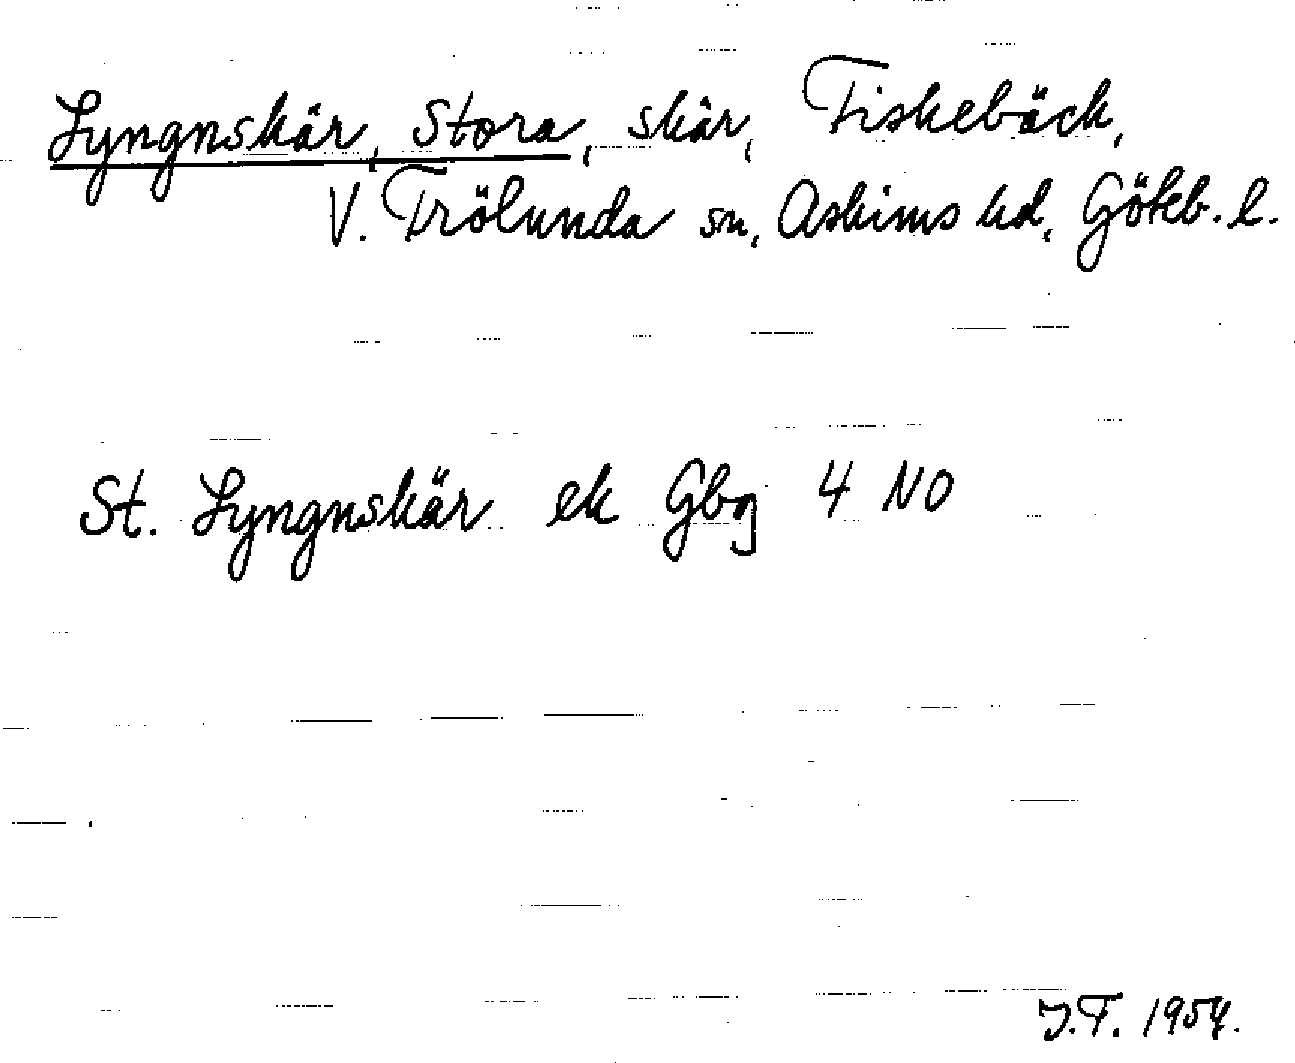 Lyngnskär, Stora, skär, Fiskebäck,
V. Frölunda sn, Askims hd, Göteb. l.
St. Lyngnskär ek Gbg 4 NO
J.F. 1954.